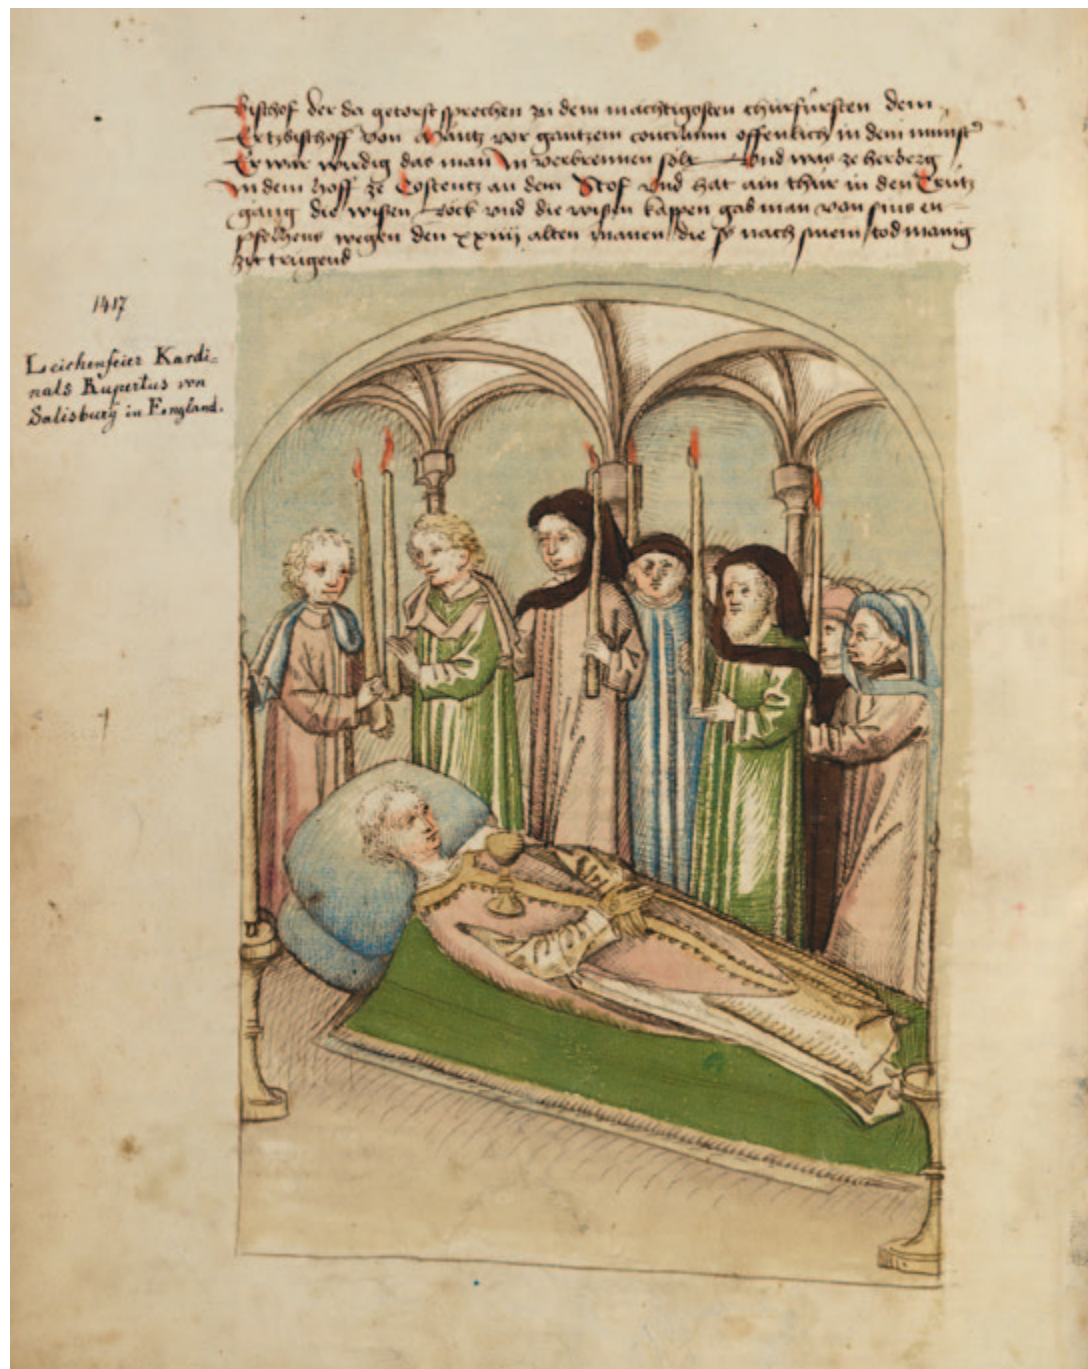 Bischof der da getorst sprechen zu dem mächtigosten churfürsten dem
Ertzbischoff von Mäntz vor gantzem concilium offenlich in dem münst
Er wär wirdig das man in verbrennen sölt Und was ze herberg
In dem hoff ze Costentz an dem Stof und hat ain thür in den Crütz
gang die wissen röck und die wissen kappen gab man von sins en
pfelhens wegen den xxiiij alten manen die sy nach sinem tod manig
zit trugend
1417
Leichenfeier Kardi-
nals Rupertus von
Salisburÿ in England.